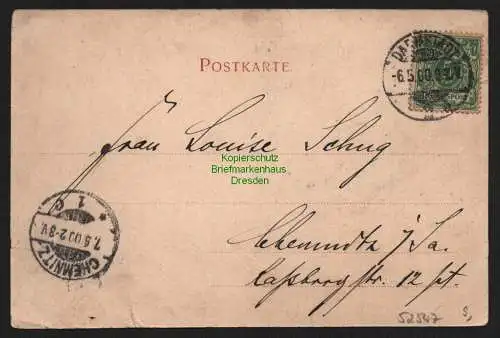 POSTKARTE
DARMSTADT
-6.5.00.
Frau Louise Schug
Kopierschutz
Briefmarkenhaus
Dresden
Chemnitz i/Sa.
Kaßbergstr. 12 pt.
CHEMNITZ
7.5.00.2-3V.
* 1 c
52547
S,